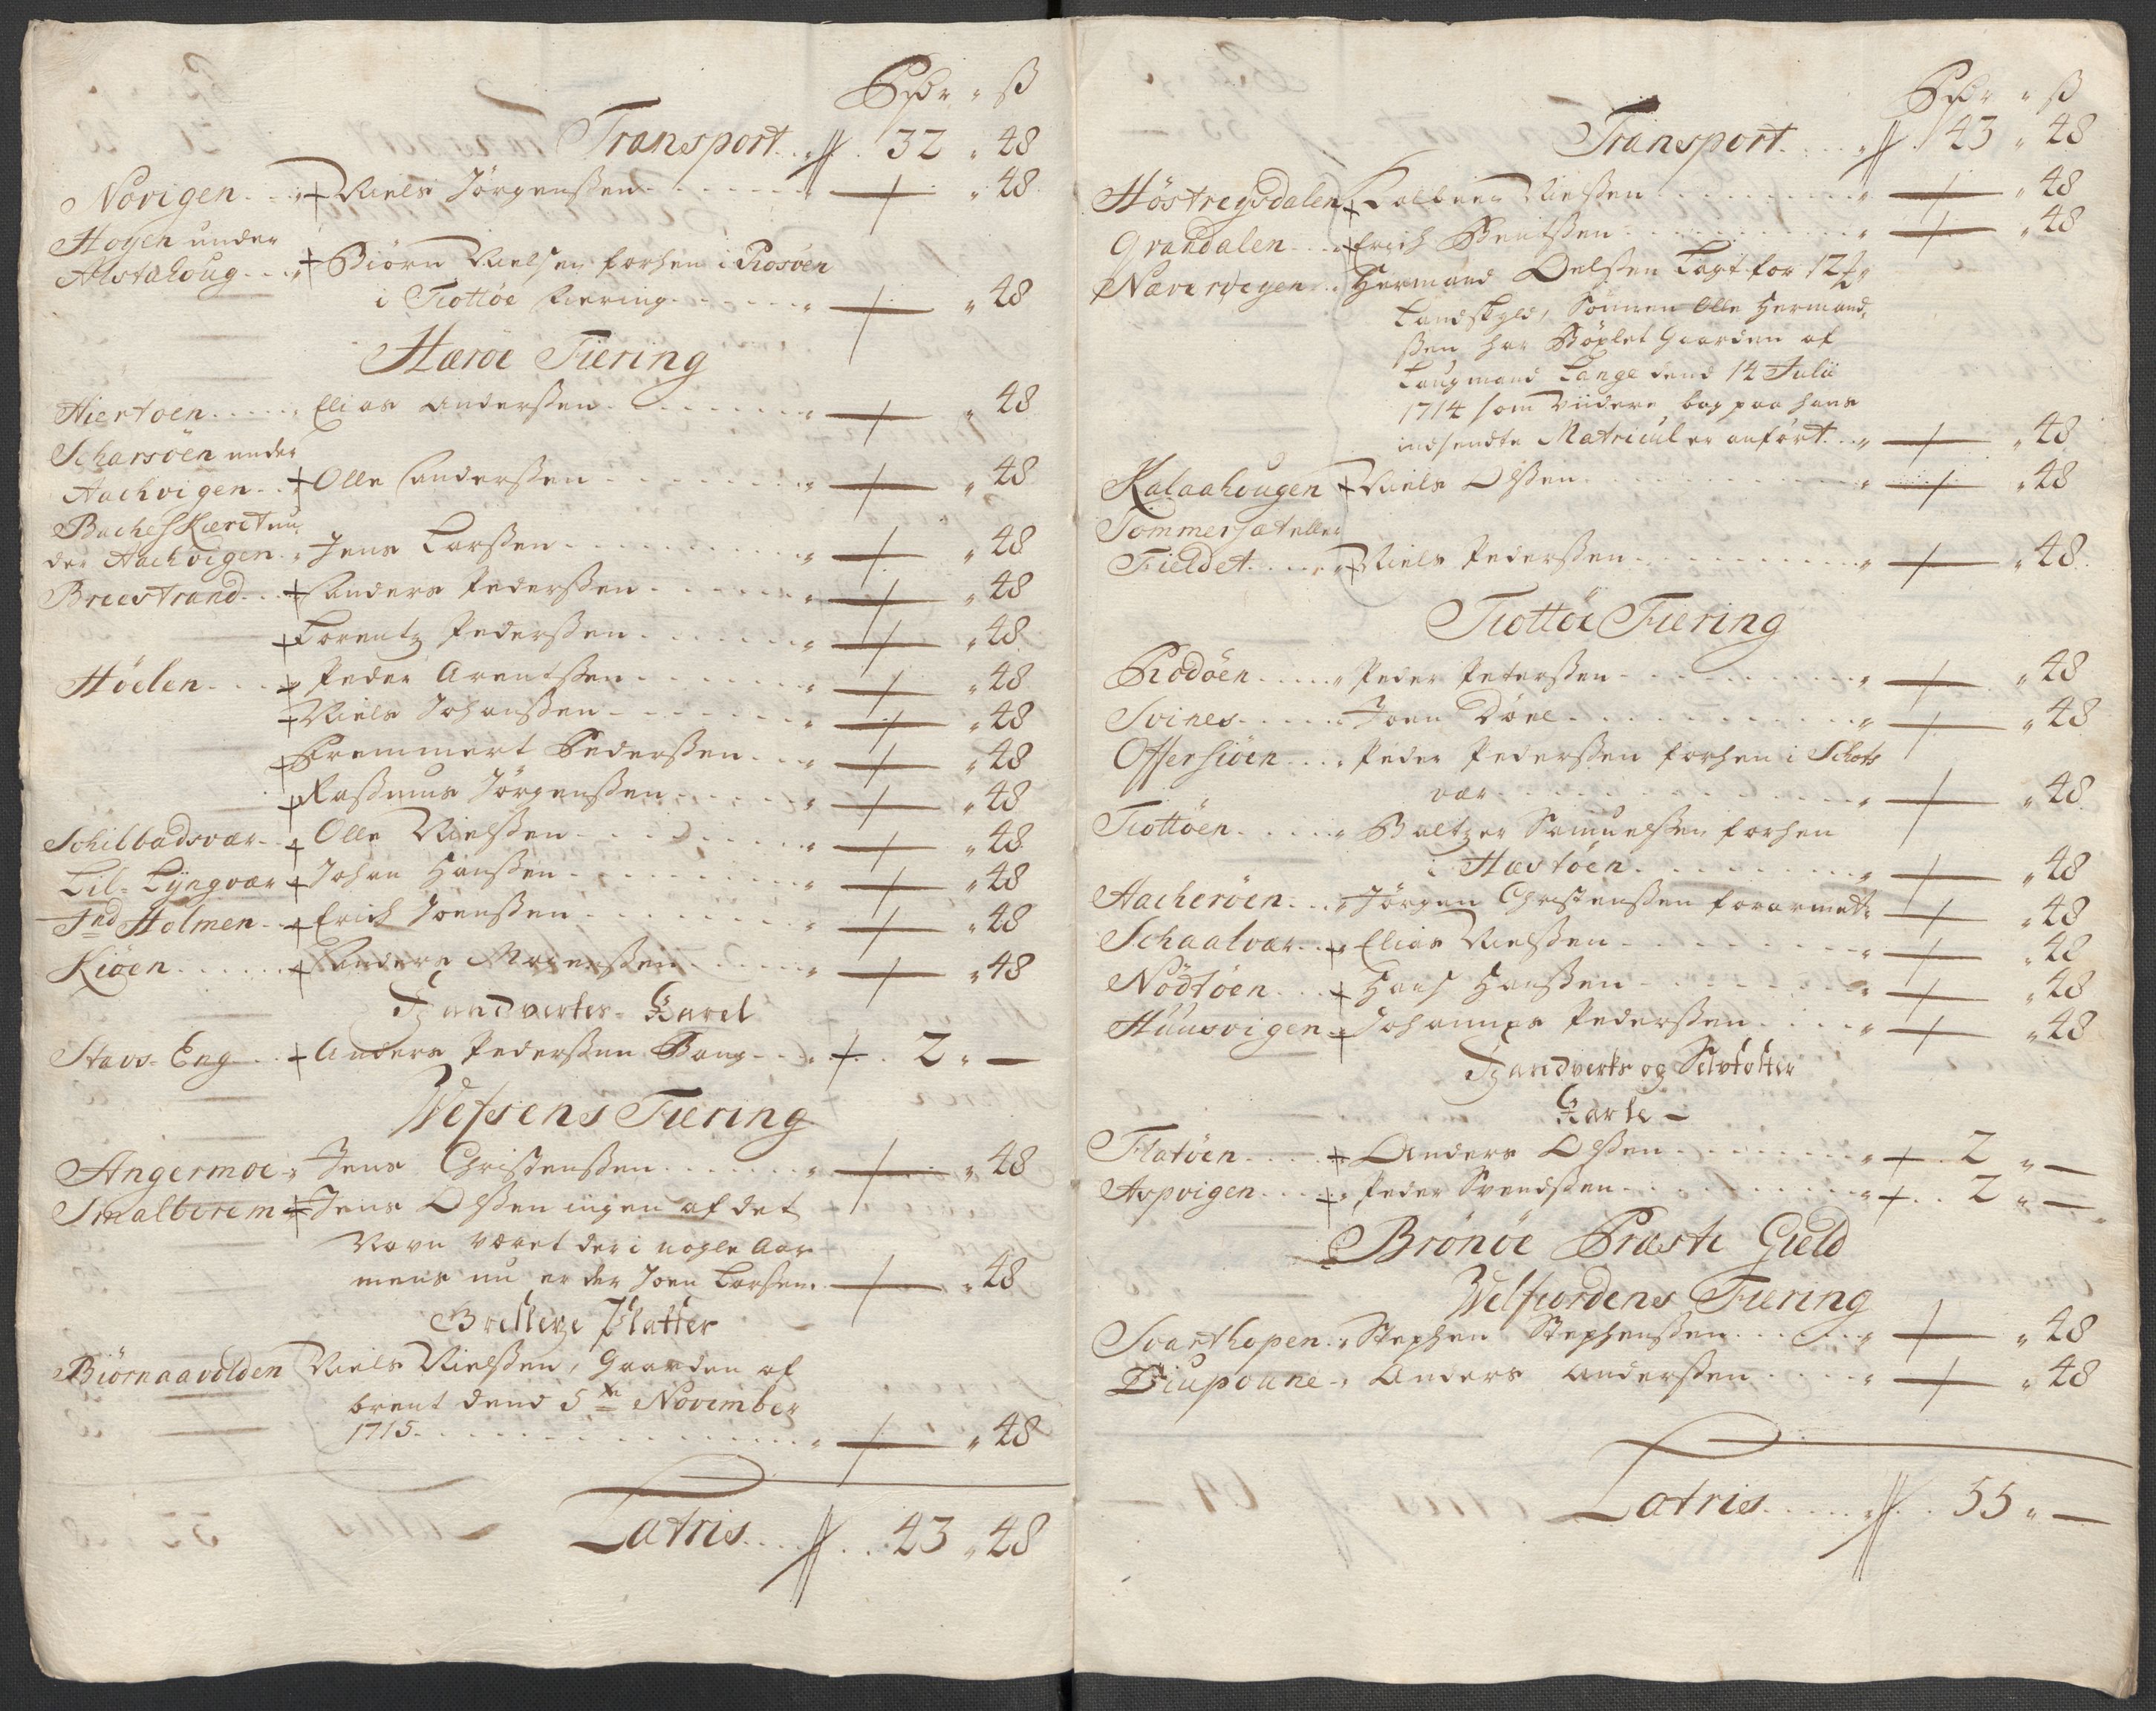 Rdr " ß
Transport.. 32 " 48
Norigen... Niels Jörgenßen " 48
Hogen under
Alstahoug... Biörn Nielsen forhen i Rosöen
i Tiottöe fiering " 48
Herröe Fiering
Hiertöen..... Elias Anderßen " 48
Scharsöen under
Aachvigen.. Olle Anderßen " 48
Bachescheret un
der Aachvigen. Jens Larßen " 48
Breestrand... Anders Pederßen " 48
Lorentz Pederßen " 48
Höelen.... Peder Arentßen " 48
Niels Johanßen " 48
Fremmert Pederßen " 48
Raßmus Jörgenßen " 48
Schilbadsvær.. Olle Nielßen " 48
Lil-Lyngvær Johan Hanßen " 48
Ind Holmen.. Erich Joenßen " 48
Kiöen....... Anders Mogenßen " 48
Handverks-Karel
Stavs-Eng... Anders Pederßen Bang 2 " —
Wefsens Fiering
Angermoe. Jens Christenßen " 48
Smalberem Jens Olßen ingen af det
Navn været der i nogle Aar
mens nu er der Joen Larßen. " 48
Brellerge Platter
Biörnaavolden Niels Nielßen, Gaarden af
brent dend 5te November
1715 " 48
Latris.... 43 " 48
Rdr " ß
Transport.... 43 " 48
Höstregsdalen Colbeen Nielßen " 48
Grandalen... Erich Bentßen " 48
Næverveigen.. Hermand Oelßen Tagt for 12
Landskyld, Sönnen Olle Hermand
ßen har Böxlet Gaarden af
Laugmand Tange dend 14 Julii
1714 som viidere bag paa hans
indsendte Matricul er anfört " 48
Kalaahougen Niels Olßen " 48
Sommersæt eller
Fieldet..... Niels Pederßen " 48
Tiottöe Fiering
Rodöen..... Peder Peterßen " 48
Svines..... Joen Döne " 48
Offersiöen... Peder Pederßen forhen i Schots
vær " 48
Tiottöen..... Baltzer Samuelßen forhen
i Hæstöen " 48
Aacheröen... Jörgen Christenßen forarmet " 48
Schaalvær... Elias Nielßen " 48
Nödtöen.... Hans Hanßen " 48
Huusvigen.. Johannes Pederßen " 48
Handverks og Selvfolter
Karle —
Flatöen.... Anders Olßen 2 " —
Aspvigen.... Peder Svendßen 2 " —
Brönöe Præste Gield
Welfiordens Fiering
Svarthopen.. Stephen Stephenßen " 48
Diupoune.. Anders Anderßen " 48
Latris..... 55 " —